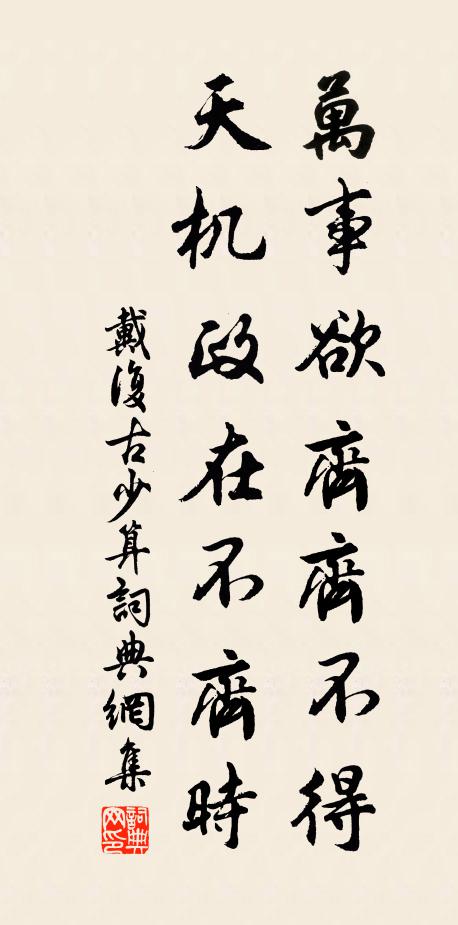 萬事欲齊齊不得
天机政在不齊時
戴復古少算詞典網集
詞典网印